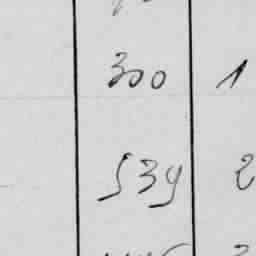 300 1
539 2